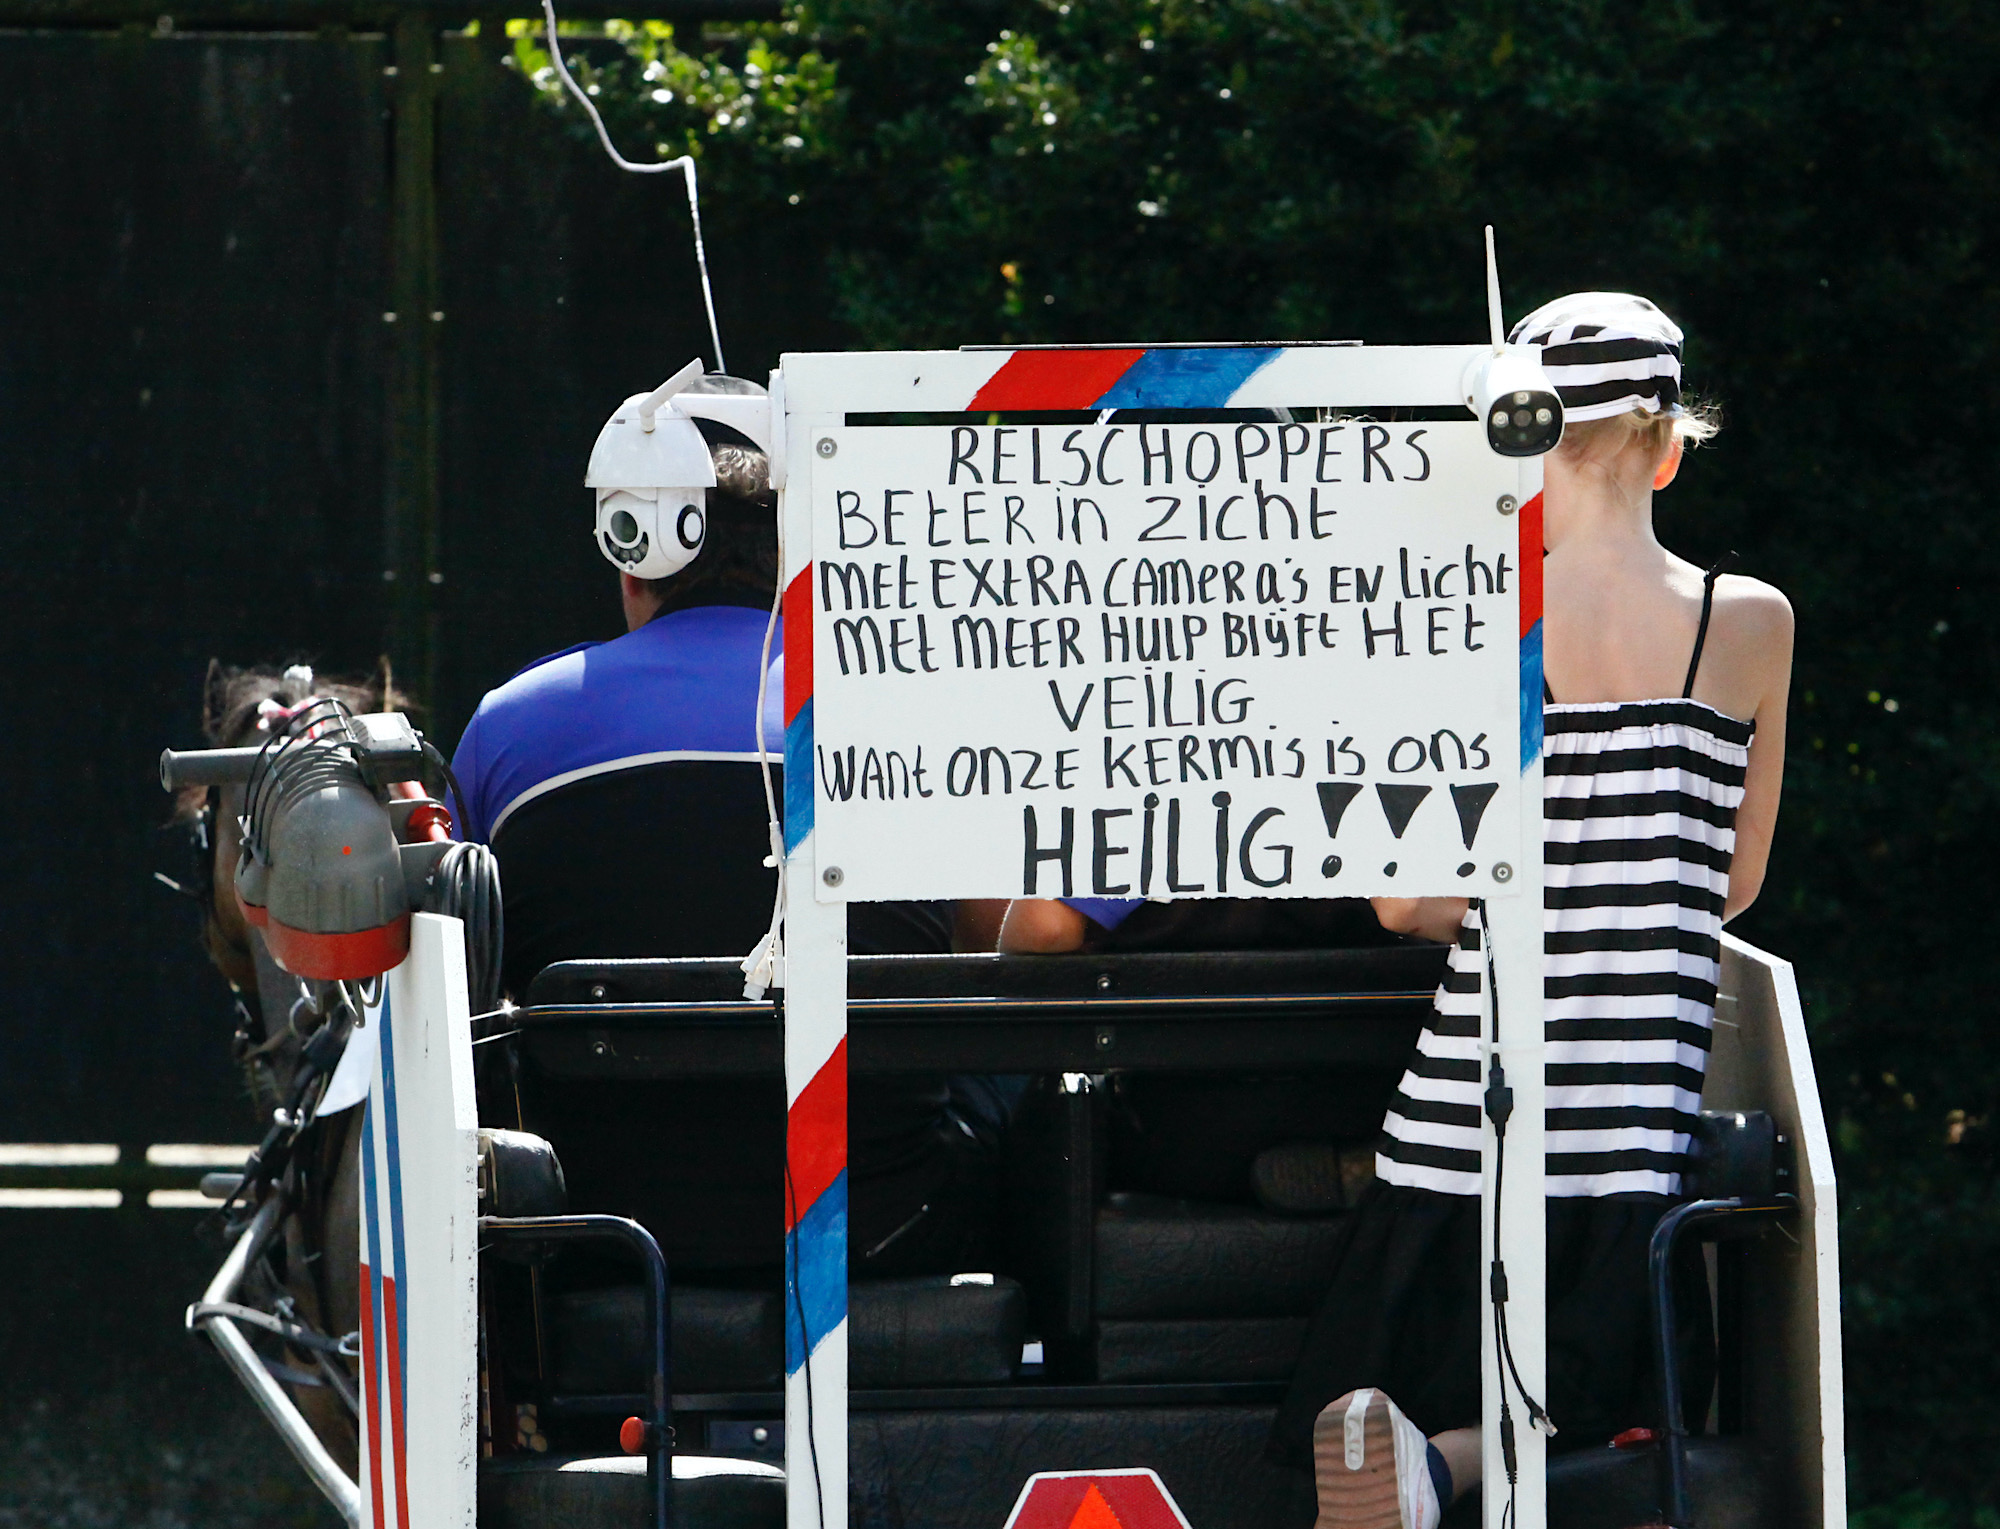 RELSCHOPPERS
BEtER in Zicht
MEt EXtRA CAMERA's EN Licht
MEt MEER HULP BLijFt HEt
VEiLiG
WANt ONZE KERMIS is ONS
HEiLiG!!!